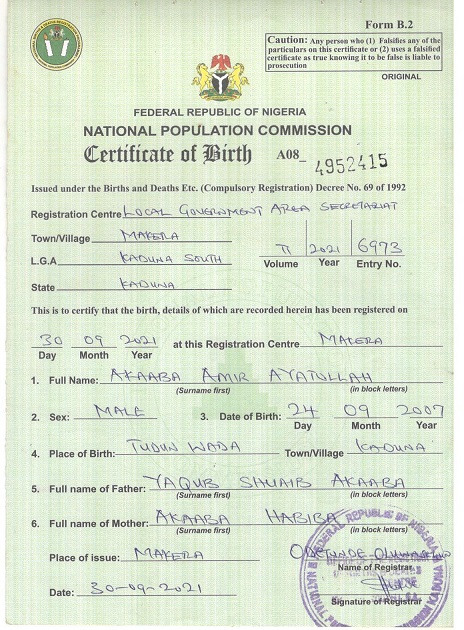 Form B.2
Caution: Any person who (1) Falsifies any of the
particulars on this certificate or (2) uses a falsified
certificate as true knowing it to be false is liable to
prosecution
ORIGINAL
FEDERAL REPUBLIC OF NIGERIA
NATIONAL POPULATION COMMISSION
Certificate of Birth A08_ 4952415
Issued under the Births and Deaths Etc. (Compulsory Registration) Decree No. 69 of 1992
Registration Centre LOCAL GOVERNMENT AREA SECRETARIAT
Town/Village MAKERA
L.G.A KADUNA SOUTH II 2021 6973
Volume Year Entry No.
State KADUNA
This is to certify that the birth, details of which are recorded herein has been registered on
30 09 2021 at this Registration Centre MAKERA
Day Month Year
1. Full Name: AKAABA AMIR AYATULLAH
(Surname first) (in block letters)
2. Sex: MALE 3. Date of Birth: 24 09 2007
Day Month Year
4. Place of Birth: TUDUN WADA Town/Village KADUNA
5. Full name of Father: YAQUB SHUAIB AKAABA
(Surname first) (in block letters)
6. Full name of Mother: AKAABA HABIBA
(Surname first) (in block letters)
Place of issue: MAKERA
Name of Registrar
Date: 30-09-2021
Signature of Registrar